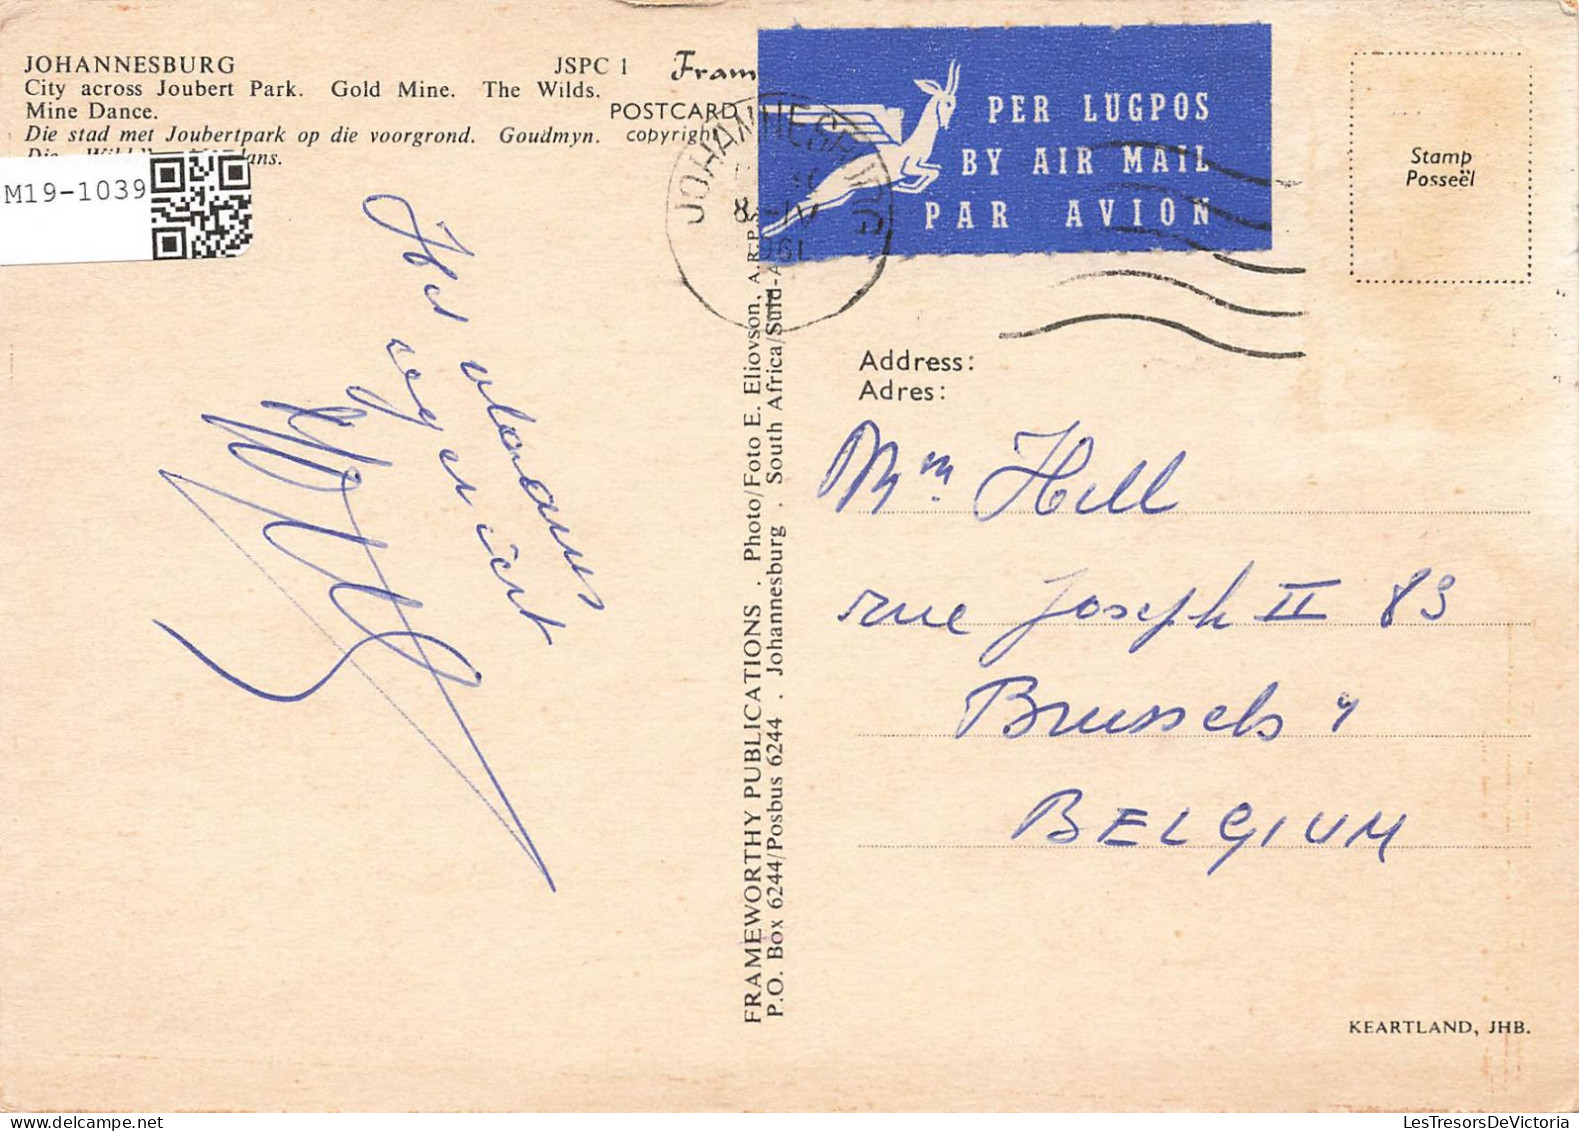 JOHANNESBURG JSPC 1
City across Joubert Park. Gold Mine. The Wilds.
Mine Dance.
Die stad met Joubertpark op die voorgrond. Goudmyn.
Die
M19-1039
Fram
POSTCARD
copyright
JOHANNESBURG
8 -IV
1961
PER LUGPOS
BY AIR MAIL
PAR AVION
Stamp
Posseël
FRAMEWORTHY PUBLICATIONS . Photo/Foto E. Eliovson, A.R.P.
P.O. Box 6244/Posbus 6244 . Johannesburg . South Africa/Suid-A
Address:
Adres:
Mm Hell
rue Joseph II 83
Brussels 4
BELGIUM
KEARTLAND, JHB.
LesTresorsDeVictoria.com